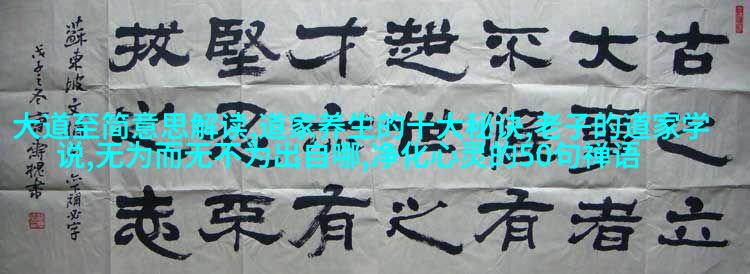 大道至简意思解读,道家养生的十大秘诀,老子的道家学
说,无为而无不为出自哪,净化心灵的50句禅语
古之立
大事者
不惟有
超世之
才亦有
堅忍不
拔之志
蘇東坡文
戊子之冬